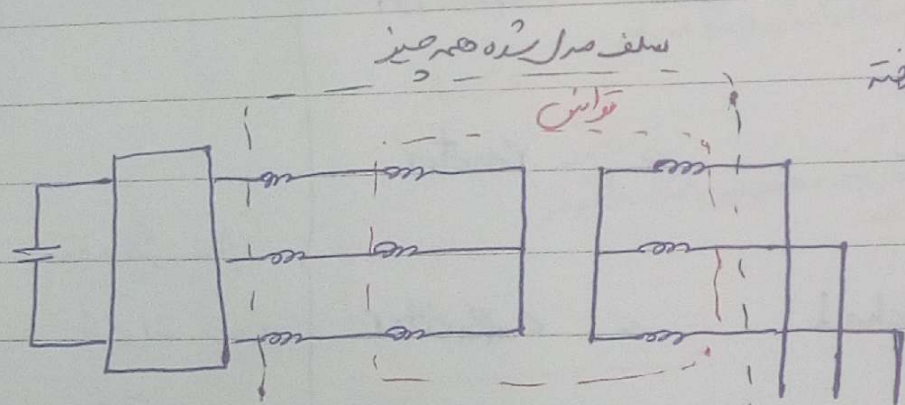 سلف مدل شده همه چیز
ترانس